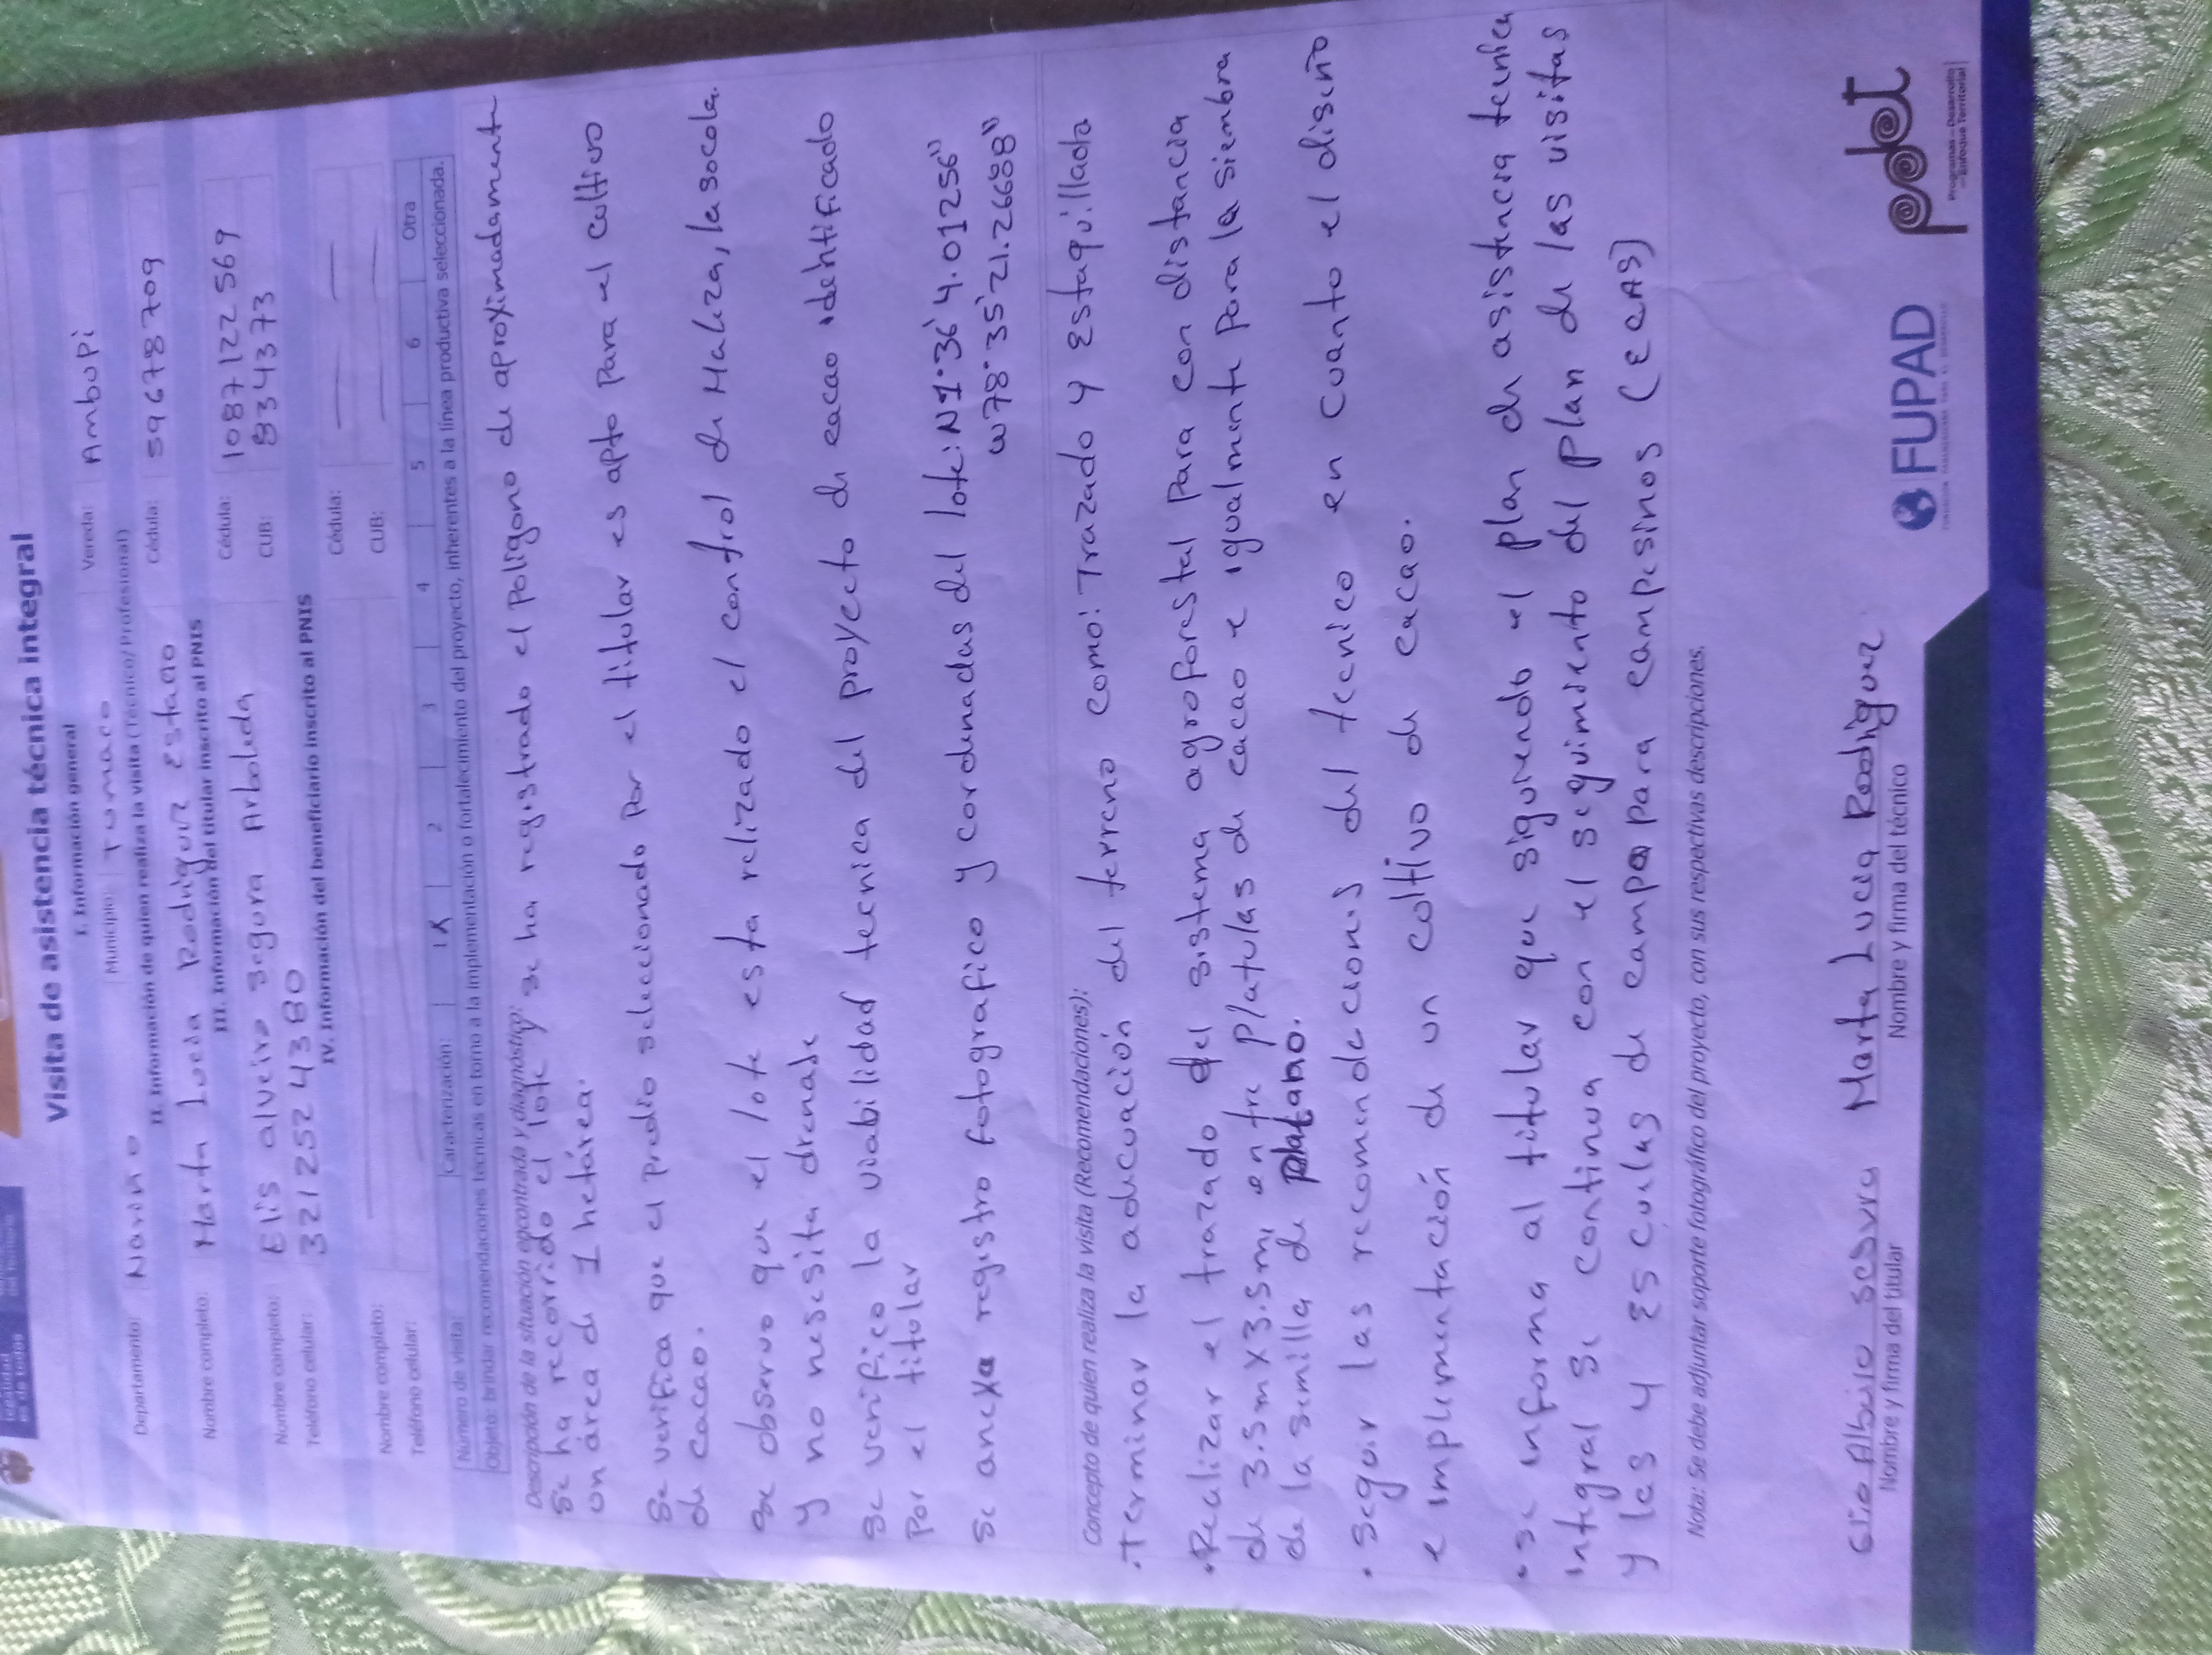 Visita de asistencia técnica integral
I. Información general
Departamento: Nariño Municipio: Tumaco Vereda: Ambupi
II. Información de quien realiza la visita (Técnico/ Profesional)
Nombre completo: Marta Lucía Rodriguez Estano Cédula: 59678709
III. Información del titular inscrito al PNIS
Nombre completo: Elis alveiro segura Arboleda Cédula: 1087122569
Teléfono celular: 3212524380 CUB: 834373
IV. Información del beneficiario inscrito al PNIS
Nombre completo: Cédula:
Teléfono celular: CUB:
Número de visita: Caracterización: 1 X 2 3 4 5 6 Otra
Objeto: brindar recomendaciones técnicas en torno a la implementación o fortalecimiento del proyecto, inherentes a la línea productiva seleccionada.
Descripción de la situación encontrada y diagnóstico:
se ha recorrido el lote y se ha registrado el Poligono de aproximadamente
un área de 1 hetárea.
Se verifica que el predio seleccionado Por el titular es apto Para el cultivo
de cacao.
Se observo que el lote esta relizado el control de Maleza, la socola.
y no nesesita drenaje
Se verifico la viabilidad tecnica del proyecto de cacao identificado
Por el titular
Se anexa registro fotografico y cordenadas del lote: N1°36'4.01256"
W78°35'21.26688"
Concepto de quien realiza la visita (Recomendaciones):
•Terminar la adecuación del terreno como: Trazado y Estaquillada
•Realizar el trazado del sistema agroforestal Para con distancia
de 3.5m X 3.5m, entre platulas de cacao e igualmente Para la siembra
de la semilla de platano.
• Seguir las recomendaciones del tecnico en cuanto el diseño
e implementación de un coltivo de cacao.
• Se informa al titular que siguiendo el plan de asistencia tecnica
integral se continua con el seguimiento del plan de las visitas
y las y Escuelas de campo para campesinos (ECAS)
Nota: Se debe adjuntar soporte fotográfico del proyecto, con sus respectivas descripciones.
Marta Lucia Rodriguez
Nombre y firma del titular Nombre y firma del técnico
FUPAD
pdet
Programas de Desarrollo
con Enfoque Territorial